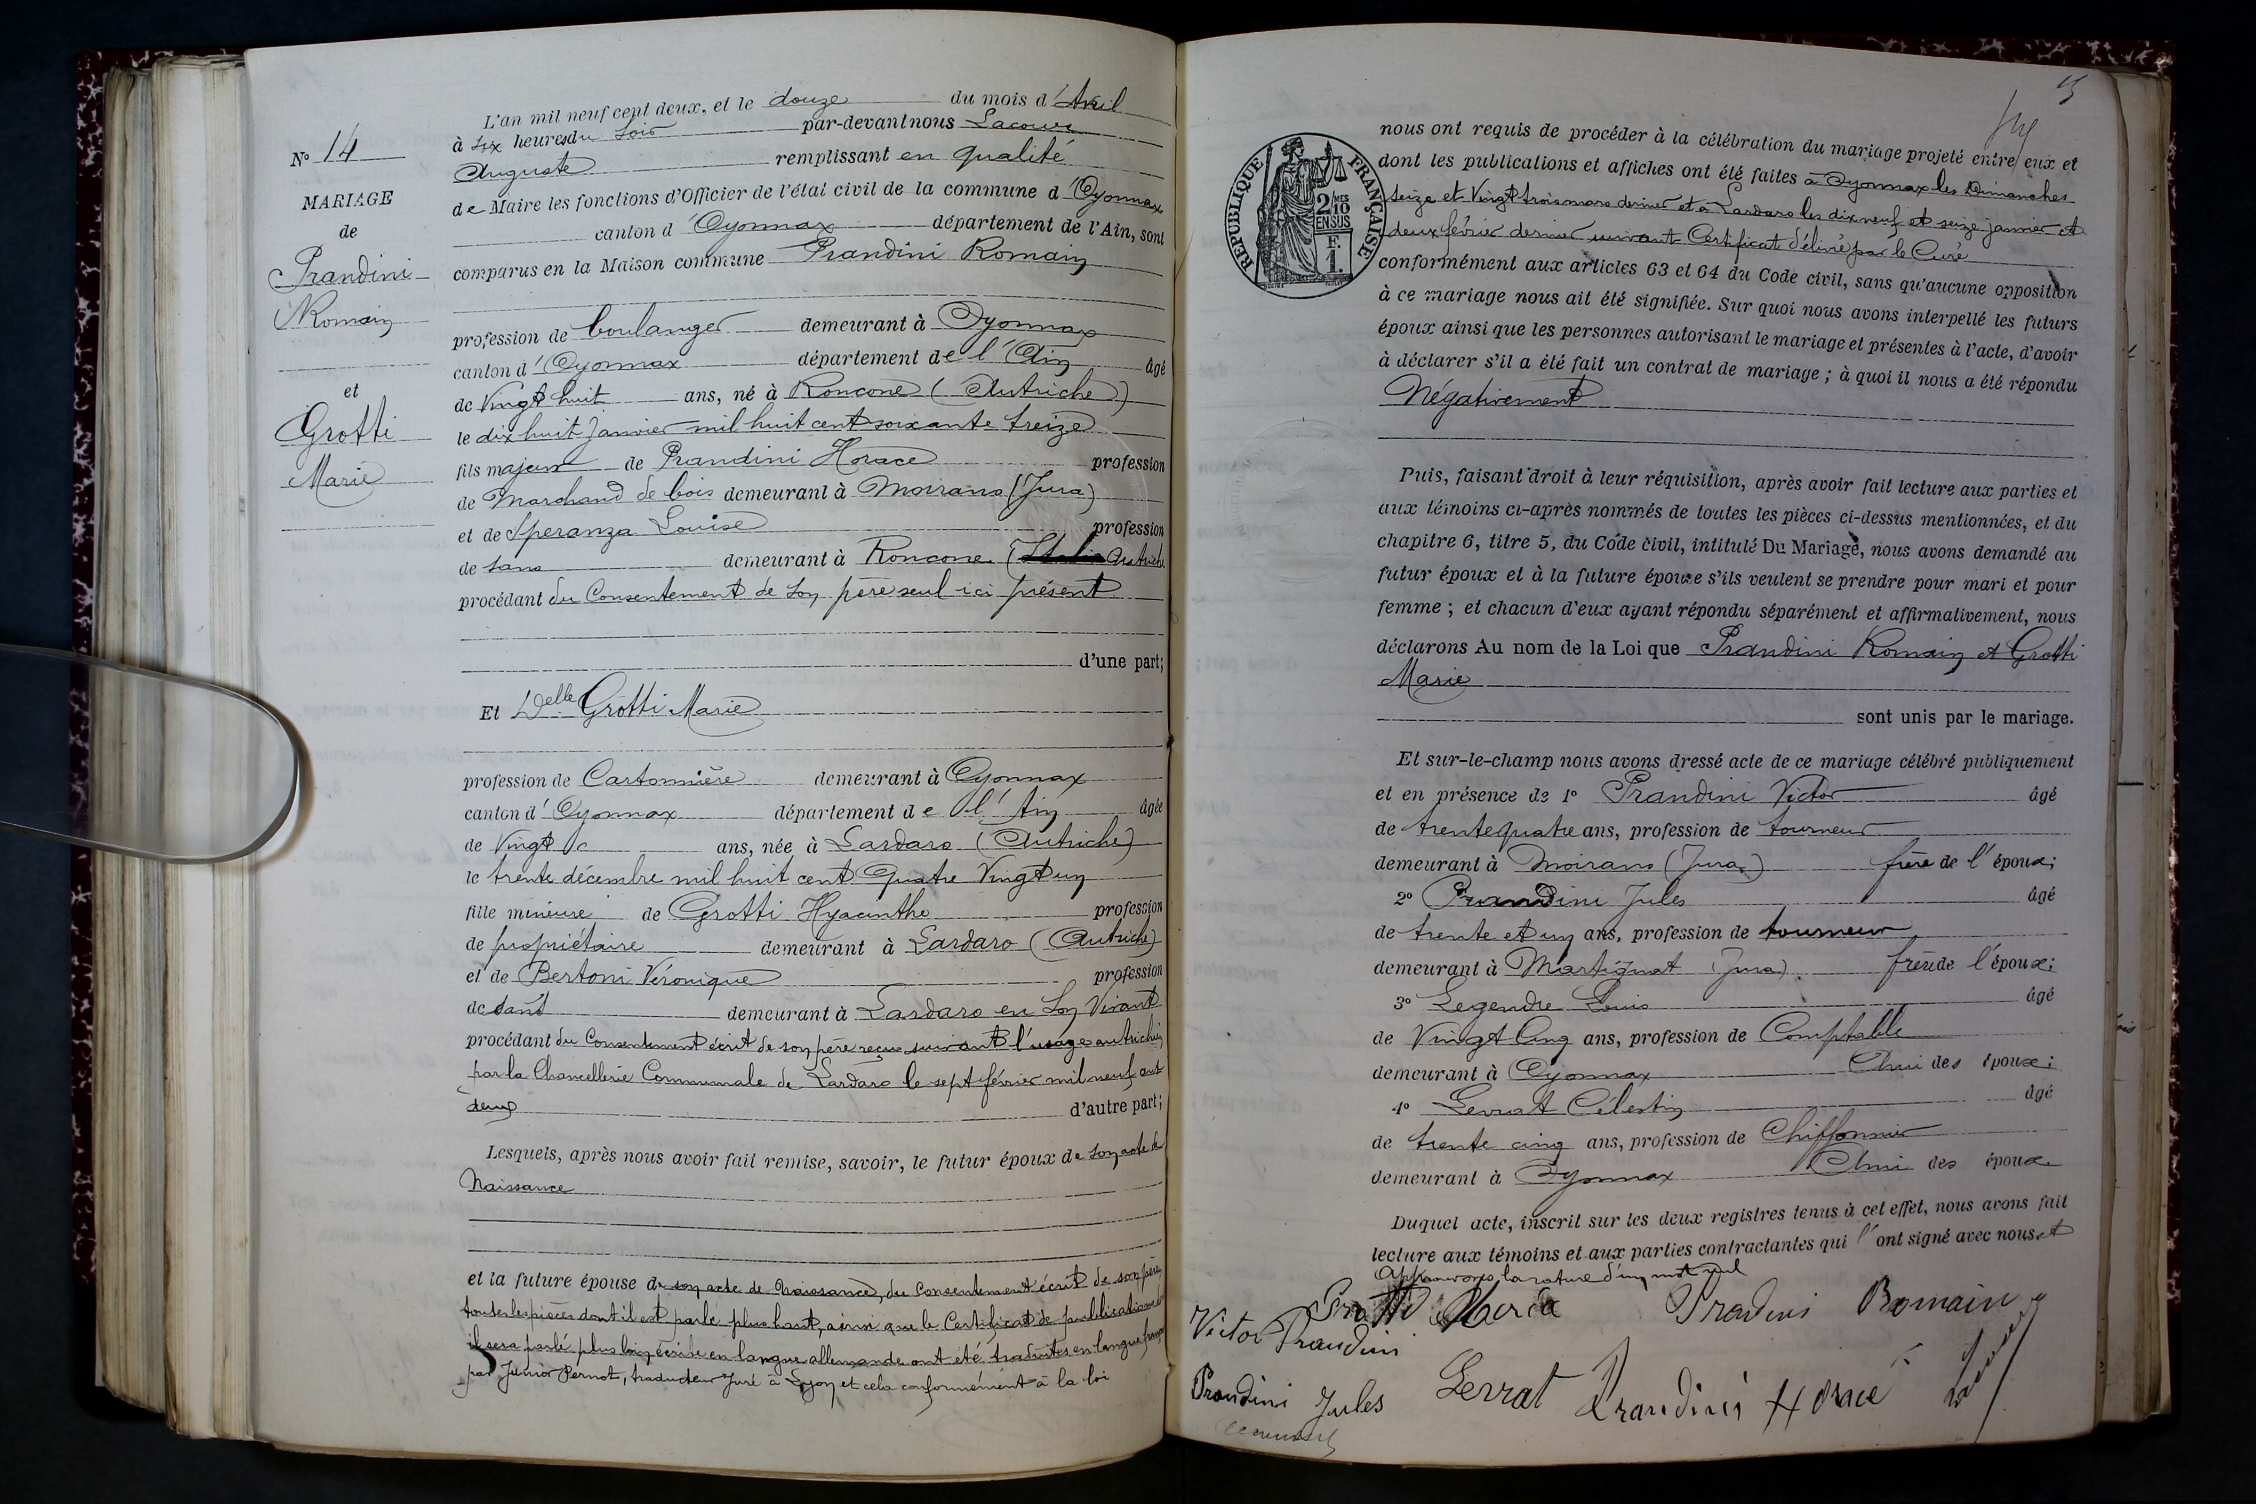 N° 14
MARIAGE
de
Prandini
Romain
et
Grotti
Marie
L'an mil neuf cent deux, et le douze du mois d'Avril
à six heures du soir par-devant nous Lacour
Auguste remplissant en qualité
de Maire les fonctions d'Officier de l'état civil de la commune d'Oyonnax
canton d'Oyonnax département de l'Ain, sont
comparus en la Maison commune Prandini Romain
profession de boulanger demeurant à Oyonnax
canton d'Oyonnax département de l'Ain âgé
de Vingt huit ans, né à Roncone (Autriche)
le dix huit Janvier mil huit cent soixante treize
fils majeur de Prandini Horace profession
de Marchand de bois demeurant à Moirans (Jura)
et de Speranza Louise profession
de sans demeurant à Roncone (Autriche
procédant du Consentement de son père seul ici présent
d'une part;
Et Delle Grotti Marie
profession de Cartonnière demeurant à Oyonnax
canton d'Oyonnax département de l'Ain âgée
de Vingt ans, née à Lardaro (Autriche)
le trente décembre mil huit cent Quatre Vingt un
fille mineure de Grotti Hyacinthe profession
de propriétaire demeurant à Lardaro (Autriche)
et de Bertoni Véronique profession
de sans demeurant à Lardaro en son Vivant
procédant du Consentement écrit de son père reçu suivant l'usage autrichien
par la Chancellerie Communale de Lardaro le sept février mil neuf cent
deux d'autre part;
Lesquels, après nous avoir fait remise, savoir, le futur époux de son acte de
Naissance
et la future épouse de son acte de Naissance, du Consentement écrit de son père
toutes les pièces dont il est parlé plus haut, ainsi que le Certificat de publications dont
il sera parlé plus loin écrite en langue allemande ont été traduites en langue française
par Junior Pernot, traducteur Juré à Lyon et cela conformément à la loi
15
RÉPUBLIQUE FRANÇAISE
2/10MES
EN SUS
F.
1.
nous ont requis de procéder à la célébration du mariage projeté entre eux et
dont les publications et affiches ont été faites à Oyonnax les Dimanches
seize et Vingt trois mars dernier et à Lardaro les dix neuf et seize janvier et
deux février dernier suivant Certificat délivré par le Curé
conformément aux articles 63 et 64 du Code civil, sans qu'aucune opposition
à ce mariage nous ait été signifiée. Sur quoi nous avons interpellé les futurs
époux ainsi que les personnes autorisant le mariage et présentes à l'acte, d'avoir
à déclarer s'il a été fait un contrat de mariage; à quoi il nous a été répondu
Négativement
Puis, faisant droit à leur réquisition, après avoir fait lecture aux parties et
aux témoins ci-après nommés de toutes les pièces ci-dessus mentionnées, et du
chapitre 6, titre 5, du Code civil, intitulé Du Mariage, nous avons demandé au
futur époux et à la future épouse s'ils veulent se prendre pour mari et pour
femme; et chacun d'eux ayant répondu séparément et affirmativement, nous
déclarons Au nom de la Loi que Prandini Romain et Grotti
Marie
sont unis par le mariage.
Et sur-le-champ nous avons dressé acte de ce mariage célébré publiquement
et en présence de 1° Prandini Victor âgé
de trente quatre ans, profession de tourneur
demeurant à Moirans (Jura) frère de l'époux;
2° Prandini Jules âgé
de trente et un ans, profession de tourneur
demeurant à Martignat (Jura) frère de l'époux;
3° Legendre Louis âgé
de Vingt Cinq ans, profession de Comptable
demeurant à Oyonnax Ami des époux;
4° Levrat Célestin âgé
de trente cinq ans, profession de Chiffonnier
demeurant à Oyonnax Ami des époux
Duquel acte, inscrit sur les deux registres tenus à cet effet, nous avons fait
lecture aux témoins et aux parties contractantes qui l'ont signé avec nous et
Approuvons la rature d'un mot nul
Grotti Maria Prandini Romain
Victor Prandini
Prandini Jules Levrat Prandini Horace